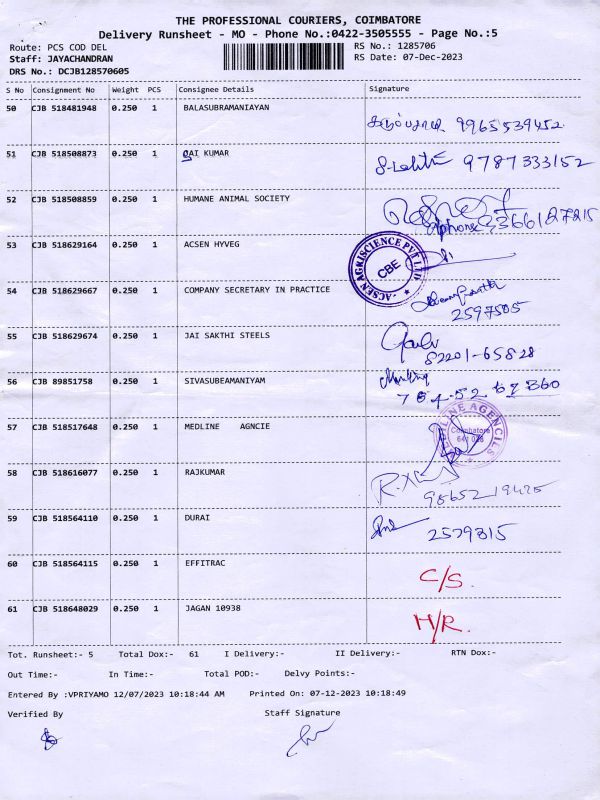 THE PROFESSIONAL COURIERS, COIMBATORE
Delivery Runsheet - MO - Phone No.:0422-3505555 - Page No.:5
Route: PCS COD DEL RS No.: 1285706
Staff: JAYACHANDRAN RS Date: 07-Dec-2023
DRS No.: DCJB128570605
S No Consignment No Weight PCS Consignee Details Signature
50 CJB 518481948 0.250 1 BALASUBRAMANIAYAN
9965539452
51 CJB 518508873 0.250 1 SAI KUMAR 9787333152
52 CJB 518508859 0.250 1 HUMANE ANIMAL SOCIETY
53 CJB 518629164 0.250 1 ACSEN HYVEG
ACSEN AGRISCIENCE PVT LTD
CBE
54 CJB 518629667 0.250 1 COMPANY SECRETARY IN PRACTICE
2597505
55 CJB 518629674 0.250 1 JAI SAKTHI STEELS
82201-65828
56 CJB 89851758 0.250 1 SIVASUBEAMANIYAM
57 CJB 518517648 0.250 1 MEDLINE AGNCIE
AGENCIES
Coimbatore
58 CJB 518616077 0.250 1 RAJKUMAR
59 CJB 518564110 0.250 1 DURAI
2579815
60 CJB 518564115 0.250 1 EFFITRAC C/S.
61 CJB 518648029 0.250 1 JAGAN 10938 H/R.
Tot. Runsheet:- 5 Total Dox:- 61 I Delivery:- II Delivery:- RTN Dox:-
Out Time:- In Time:- Total POD:- Delvy Points:-
Entered By :VPRIYAMO 12/07/2023 10:18:44 AM Printed On: 07-12-2023 10:18:49
Verified By Staff Signature